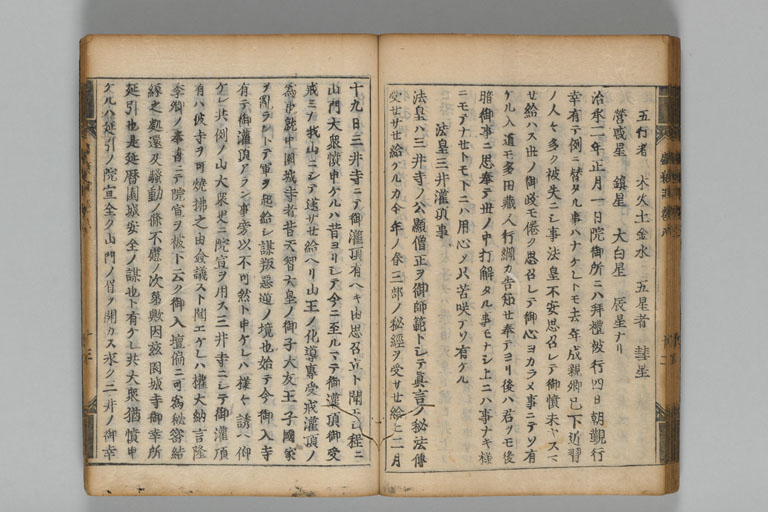 五行者 木火土金水 五星者 彗星
營惑星 鎮星 大白星 辰星ナリ
治承二年正月一日院御所ニハ拜禮被行四日朝覲行
幸有テ例ニ替タル事ハナケレトモ去年成親卿已下近習
ノ人々多ク被失ニシ事法皇不安思召レテ御憤未ヤスマ
セ給ハス世ノ御政モ倦ク思召レテ御心ヨカラヌ事ニテソ有
ケル入道モ多田藏人行綱カ告知セ奉テヨリ後ハ君ヲモ後
暗御事ニ思奉テ世ノ中打解タル事モナシ上ニハ事ナキ様
ニモテナセトモ下ニハ用心メ只苦咲テソ有ケル
法皇三井灌頂事
法皇ハ三井寺ノ公顯僧正ヲ御師範トシテ眞言ノ秘法傳
受セサセ給ケルカ今年ノ春三部ノ秘經ヲ受サセ給ヒ二月
十九日ニ三井寺ニテ御灌頂有ヘキ由思召立ト聞エシ程ニ
山門大衆憤申ケルハ昔ヨリシテ今ニ至ルマテ御灌頂御受
戒ミナ我山ニシテ遂サセ給ヘリ山王ノ化導專受戒灌頂ノ
為也就中園城寺者昔天智天皇ノ御子大友王子國家
ヲ亂ラントテ軍ヲ起給シ謀叛惡道ノ境也始テ今御入寺
有テ御灌頂アラン事旁以不可然ト申ケレハ様々誘ヘ仰
ケレ共例ノ山大衆更ニ院宣ヲ用ス三井寺ニシテ御灌頂
有ハ彼寺ヲ可燒拂之由僉議スト聞エケレハ權大納言隆
季卿ノ奉書ニテ院宣ヲ被下云ク御入壇偏ニ可為秘密結
縁之處還及騷動ノ條不慮ノ次第歟因茲園城寺御幸所
延引也是延暦園城安全ノ謀也ト有ケレ共大衆猶憤申
ケルハ延引ノ院宣全ク山門ノ眉ヲ開カス永ク三井ノ御幸